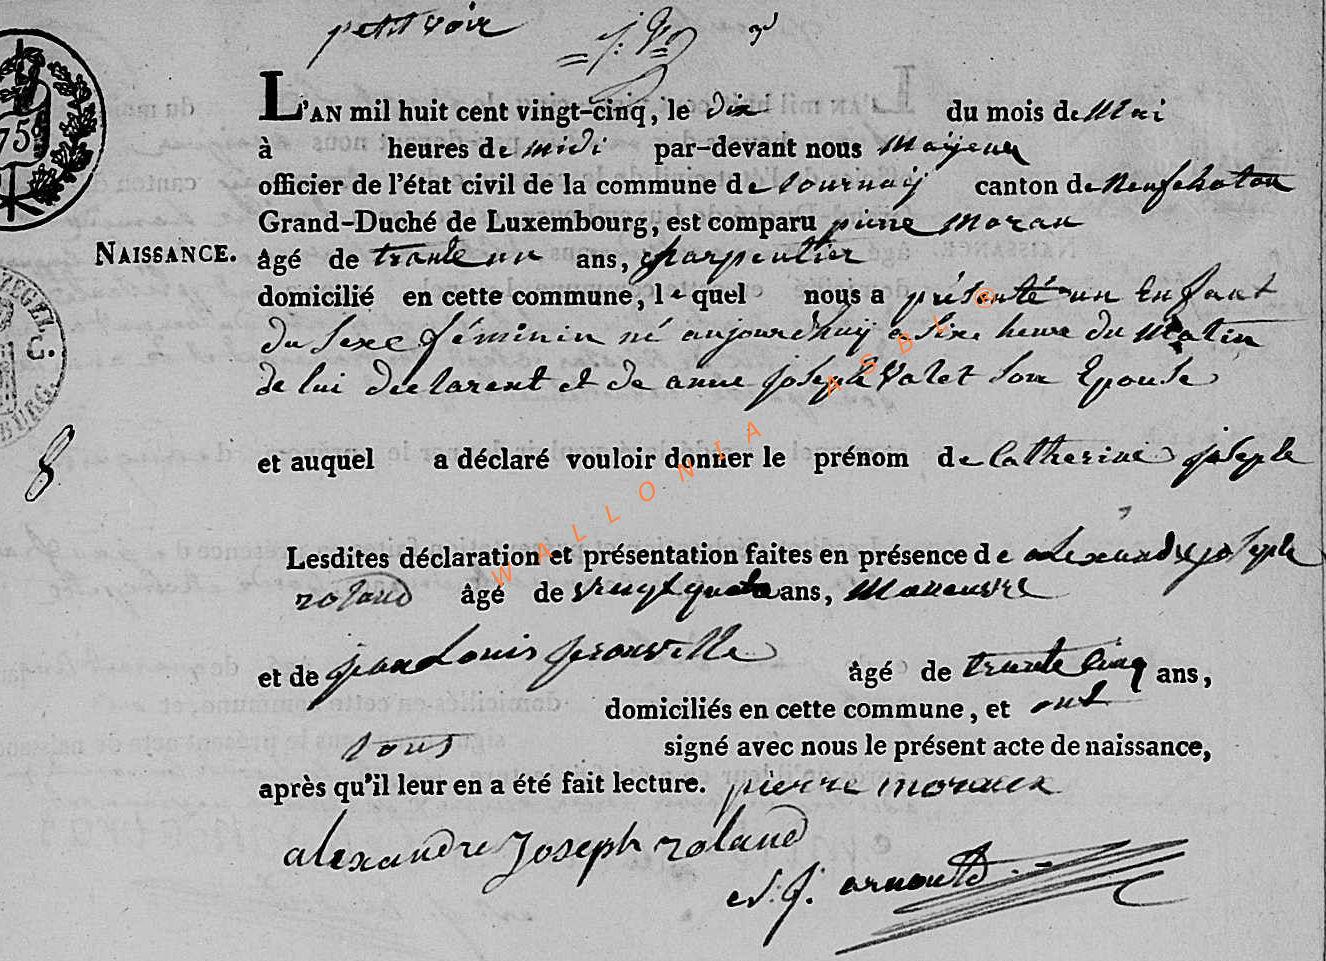 petit voir
L'AN mil huit cent vingt-cinq, le dix du mois de Mai
à heures de midi par-devant nous Mayeur
officier de l'état civil de la commune de tournay canton de Neufchateau
Grand-Duché de Luxembourg, est comparu pierre Moraux
NAISSANCE. âgé de trante un ans, charpentier
domicilié en cette commune, le quel nous a présenté un Enfant
du sexe féminin né aujourdhuy a six heure du Matin
de lui declarent et de anne joseph Valet son Epouse
et auquel a déclaré vouloir donner le prénom de Catherine joseph
Lesdites déclaration et présentation faites en présence de alexandre joseph
roland âgé de vingt quatre ans, Maneuvre
et de jean Louis âgé de trante Cinq ans,
domiciliés en cette commune, et ont
tous signé avec nous le présent acte de naissance,
après qu'il leur en a été fait lecture. pierre moraux
alexandre Joseph roland
j. arnould
75
C.
8
WALLONIA ASBL ©